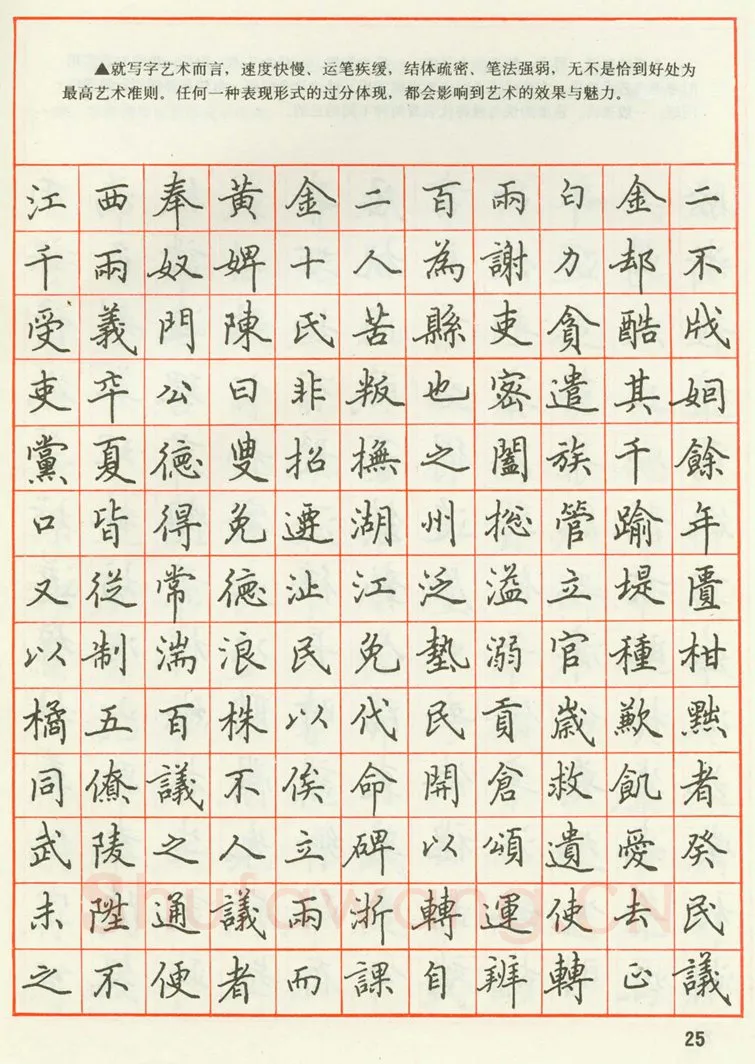 ▲就写字艺术而言，速度快慢、运笔疾缓，结体疏密、笔法强弱，无不是恰到好处为
最高艺术准则。任何一种表现形式的过分体现，都会影响到艺术的效果与魅力。
江西奉黃金二百兩白金二
千兩奴婢十人為謝力却不
受義門陳氏苦縣吏貪酷戕
吏卒公曰非叛也密遣其姻
黨夏德叟招撫之闔族千餘
口皆得免遷湖州揔管踰年
又從常德沚江泛溢立堤匱
以制湍浪民免墊溺官種柑
橘五百株以代民貢歲歉黜
同僚議不俟命開倉救飢者
武陵之人立碑以頌遺愛癸
未陞通議兩浙轉運使去民
之不便者而課自辦轉正議
Shufawang.CN
25